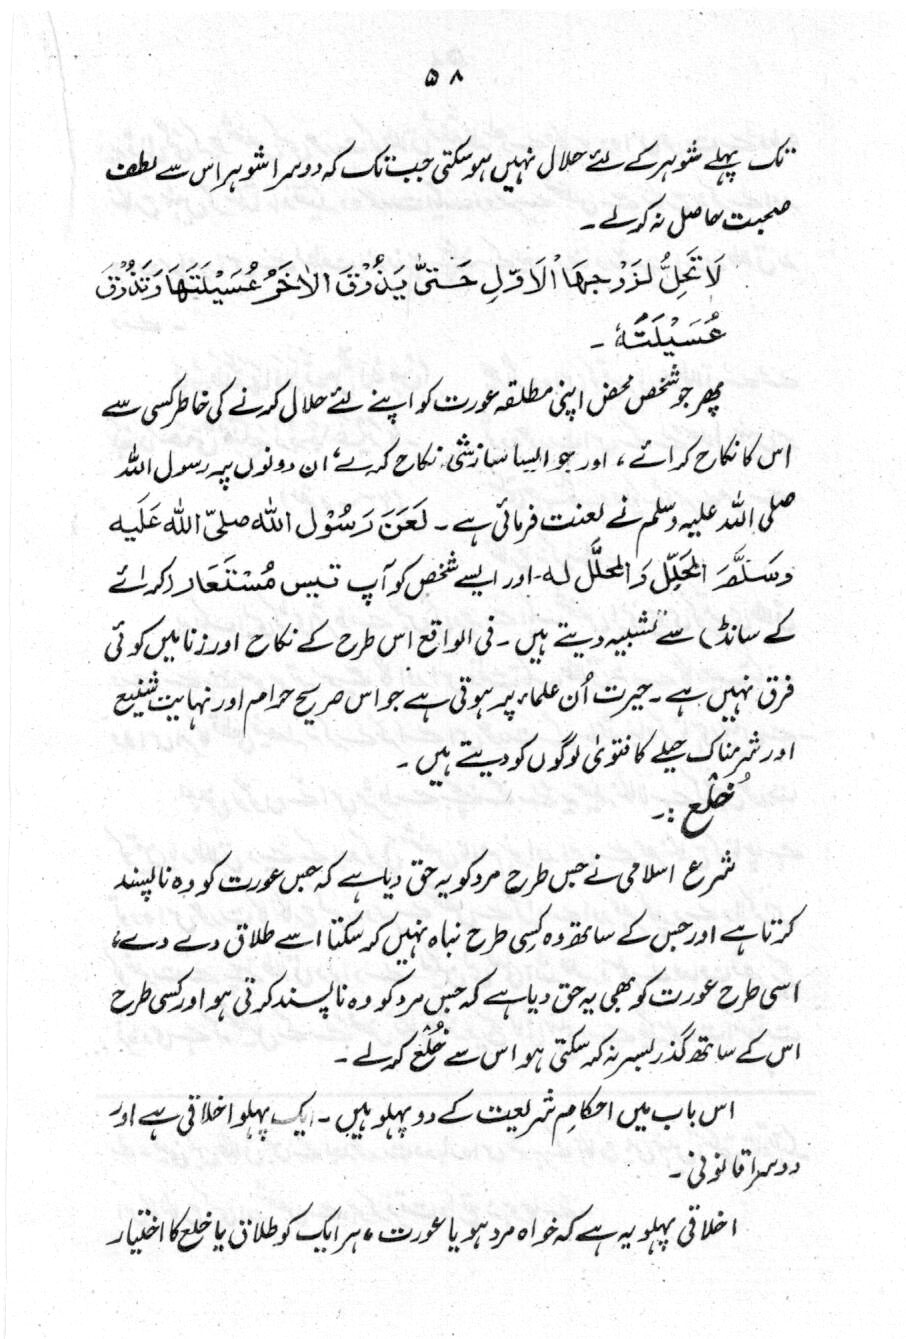 ۵۸
تک پہلے شوہر کے لئے حلال نہیں ہو سکتی جب تک کہ دوسرا شوہر اس سے لطف
صحبت حاصل نہ کرلے۔
لَا تَحِلُّ لِزَوْجِهَا الْاَوَّلِ حَتّٰى يَذُوْقَ الْاٰخَرُ عُسَيْلَتَهَا وَتَذُوْقَ
عُسَيْلَتَهٗ۔
پھر جو شخص محض اپنی مطلقہ عورت کو اپنے لئے حلال کرنے کی خاطر کسی سے
اس کا نکاح کرائے، اور جو ایسا سازشی نکاح کرے، ان دونوں پر رسول اللہ
صلی اللہ علیہ وسلم نے لعنت فرمائی ہے۔ لَعَنَ رَسُوْل اللہ صلیّ اللہ عَلَیہ
وسَلَّمَ المُحَلِّل وَالمحلَّل لہ۔ اور ایسے شخص کو آپ تیس مُسْتَعَار (کرائے
کے سانڈ) سے تشبیہ دیتے ہیں۔ فی الواقع اس طرح کے نکاح اور زنا میں کوئی
فرق نہیں ہے۔ حیرت اُن علماء پر ہوتی ہے جو اس صریح حرام اور نہایت شنیع
اور شرمناک حیلے کا فتویٰ لوگوں کو دیتے ہیں۔
خُلع:۔
شرع اسلامی نے جس طرح مرد کو یہ حق دیا ہے کہ جس عورت کو وہ ناپسند
کرتا ہے اور جس کے ساتھ وہ کسی طرح نباہ نہیں کر سکتا اسے طلاق دے دے،
اسی طرح عورت کو بھی یہ حق دیا ہے کہ جس مرد کو وہ ناپسند کرتی ہو اور کسی طرح
اس کے ساتھ گذر بسر نہ کر سکتی ہو اس سے خُلع کرلے۔
اس باب میں احکامِ شریعت کے دو پہلو ہیں۔ ایک پہلو اخلاقی ہے اور
دوسرا قانونی۔
اخلاقی پہلو یہ ہے کہ خواہ مرد ہو یا عورت، ہر ایک کو طلاق یا خلع کا اختیار